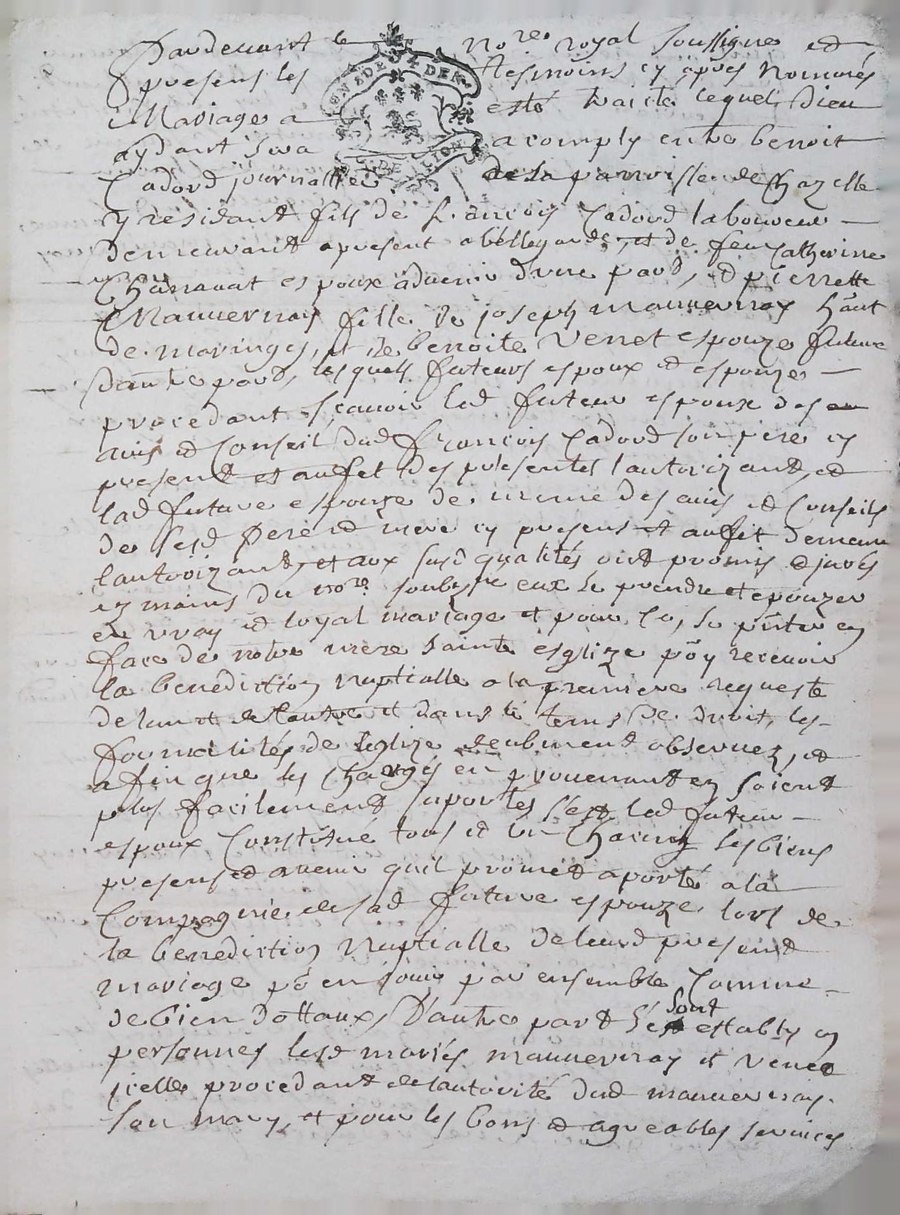 Pardevant le no.re royal soussigné et
presens les tesmoins cy apres nommés
Mariage a esté traité lequel Dieu
aydant sera acomply entre benoit
Cadord journallier de la parroisse de Chazelle
y residant fils de François Cadord laboureur
demeurant apresent a bellegarde, et de feue Catherine
espoux advenir d'une part, et pierrette
Mauvernay fille de joseph mauvernay hant
de maringes, et de benoite Venet espouze future
dautre part, lesquels futurs espoux et espouze
procedant sçavoir led futur espoux des
avis et Conseil dud françois Cadord son pere cy
present et auffet des presentes lautorizant, et
lad future espouze de mesme des avis et Conseils
de sesd pere et mere cy presens et auffet de meme
lautorizant, et aux susd qualités ont promis et jurés
ez mains du no.re soubzne eux se prendre et epouzer
en vray et loyal mariage et pour ce, se pnter en
face de notre mere sainte esglize po y recevoir
la benediction nuptialle a la premiere requeste
de lun et de lautre et dans le tems de droit, les
formalités de leglize observez, et
afin que les charges en provenantez soient
plus facilement suportés s'est led futur
espoux Constitue tous et un chacun ses biens
presens et avenir quil promet aporté a la
Compagnie de sad future espouze lors de
la benediction nuptialle de leurd present
mariage po en jouir par ensemble Comme
de bien dottaux, D'autre part se sont establÿ en
personnes lesd mariés mauvernay et Venet
icelle procedant de lautorité dud mauvernay
son mary, et pour les bons et agreables services
GEN DE LION